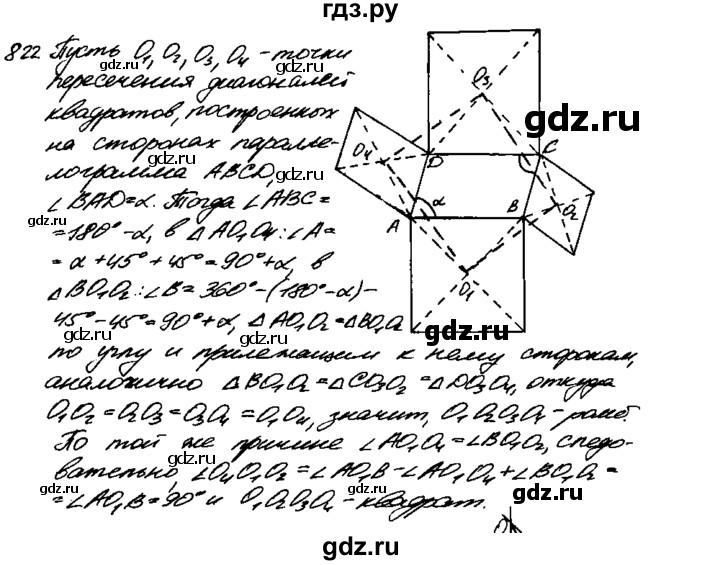 гдз.ру
822 Пусть O₁, O₂, O₃, O₄ - точки
пересечения диагоналей
квадратов, построенных
на сторонах паралле-
лограмма ABCD,
∠BAD=α. Тогда ∠ABC=
=180°-α, в △AO₁O₄: ∠A=
=α+45°+45°=90°+α, в
△BO₁O₂: ∠B=360°-(180°-α)-
45°-45°=90°+α, △AO₁O₂=△BO₁O₂
по углу и прилежащим к нему сторонам,
аналогично △BO₁O₂=△CO₃O₂=△DO₃O₄, откуда
O₁O₂=O₂O₃=O₃O₄=O₁O₄, значит, O₁O₂O₃O₄-ромб.
По той же причине ∠AO₁O₄=∠BO₁O₂, следо-
вательно, ∠O₄O₁O₂=∠AO₁B-∠AO₁O₄+∠BO₁O₂=
=∠AO₁B=90° и O₁O₂O₃O₄-квадрат.
O₃
D
C
O₄
α
A
B
O₂
O₁
gdz.ru
gdz.ru
gdz.ru
gdz.ru
gdz.ru
gdz.ru
gdz.ru
gdz.ru
gdz.ru
gdz.ru
gdz.ru
gdz.ru